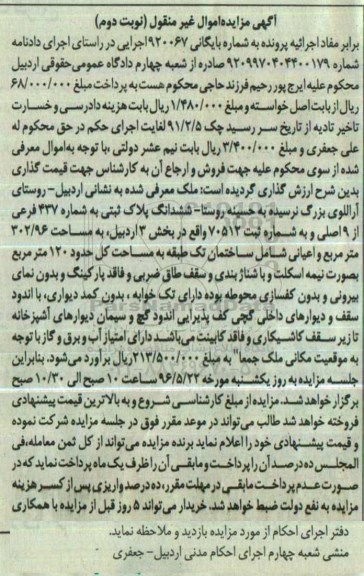 آگهی مزایده اموال غیر منقول (نوبت دوم)
برابر مفاد اجرائیه پرونده به شماره بایگانی ۹۲۰۰۶۷ اجرایی در راستای اجرای دادنامه
شماره ۹۲۰۹۹۷۰۴۰۴۴۰۰۱۷۹ صادره از شعبه چهارم دادگاه عمومی حقوقی اردبیل
محکوم علیه ایرج پور رحیم فرزند حاجی محکوم هست به پرداخت مبلغ ۶۸/۰۰۰/۰۰۰
ریال از بابت اصل خواسته و مبلغ ۱/۴۸۰/۰۰۰ ریال بابت هزینه دادرسی و خسارت
تاخیر تادیه از تاریخ سر رسید چک ۹۱/۲/۵ لغایت اجرای حکم در حق محکوم له
علی جعفری و مبلغ ۳/۴۰۰/۰۰۰ ریال بابت نیم عشر دولتی ،با توجه به اموال معرفی
شده از سوی محکوم علیه جهت فروش و ارجاع آن به کارشناس جهت قیمت گذاری
بدین شرح ارزش گذاری گردیده است: ملک معرفی شده به نشانی اردبیل- روستای
آراللوی بزرگ نرسیده به حسینه روستا- ششدانگ پلاک ثبتی به شماره ۴۳۷ فرعی
از ۹ اصلی و به شماره ثبت ۷۰۵۱۳ واقع در بخش ۳ اردبیل، به مساحت ۳۰۲/۹۶
متر مربع و اعیانی شامل ساختمان تک طبقه به مساحت کل حدود ۱۲۰ متر مربع
بصورت نیمه اسکلت و با شناژ بندی و سقف طاق ضربی و فاقد پارکینگ و بدون نمای
بیرونی و بدون کفسازی محوطه بوده دارای تک خوابه ، بدون کمد دیواری، با اندود
سقف و دیوارهای داخلی گچی کف پذیرایی اندود گچ و سیمان دیوارهای آشپزخانه
تا زیر سقف کاشیکاری و فاقد کابینت می باشد دارای امتیاز آب و برق و گاز با توجه
به موقعیت مکانی ملک جمعا" به مبلغ ۲۱۳/۵۰۰/۰۰۰ ریال برآورد می شود. بنابراین
جلسه مزایده به روز یکشنبه مورخه ۹۶/۵/۲۲ ساعت ۱۰ صبح الی ۱۰/۳۰ صبح
برگزار خواهد شد. مزایده از مبلغ کارشناسی شروع و به بالاترین قیمت پیشنهادی
فروخته خواهد شد طالب می تواند در موعد مقرر فوق در جلسه مزایده شرکت نموده
و قیمت پیشنهادی خود را اعلام نماید برنده مزایده می تواند از کل ثمن معامله،فی
المجلس ده درصد آن را پرداخت و مابقی آن را ظرف یک ماه پرداخت نماید که در
صورت عدم پرداخت مابقی در مهلت مقرر، ده درصد واریزی پس از کسر هزینه
مزایده به نفع دولت ضبط خواهد شد. خریدار می تواند ۵ روز قبل از مزایده با همکاری
دفتر اجرای احکام از مورد مزایده بازدید و ملاحظه نماید.
منشی شعبه چهارم اجرای احکام مدنی اردبیل- جعفری